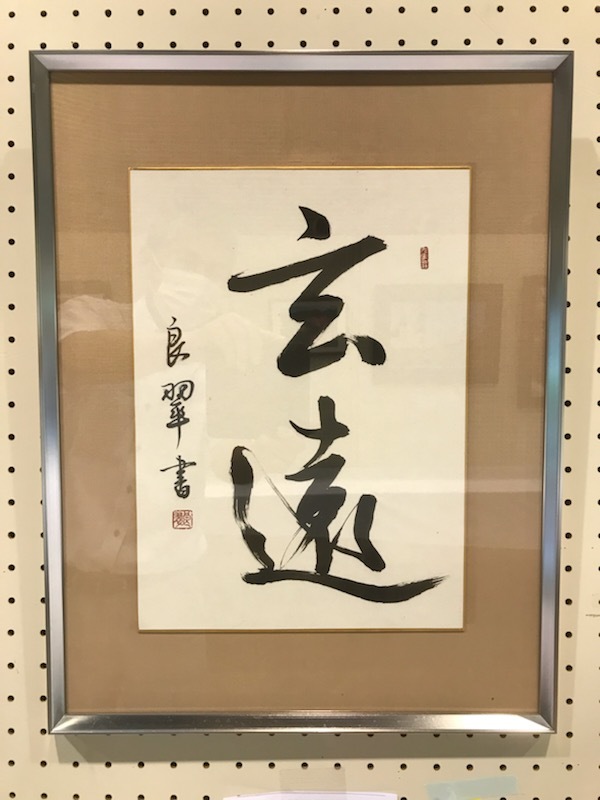 玄遠
良翠書